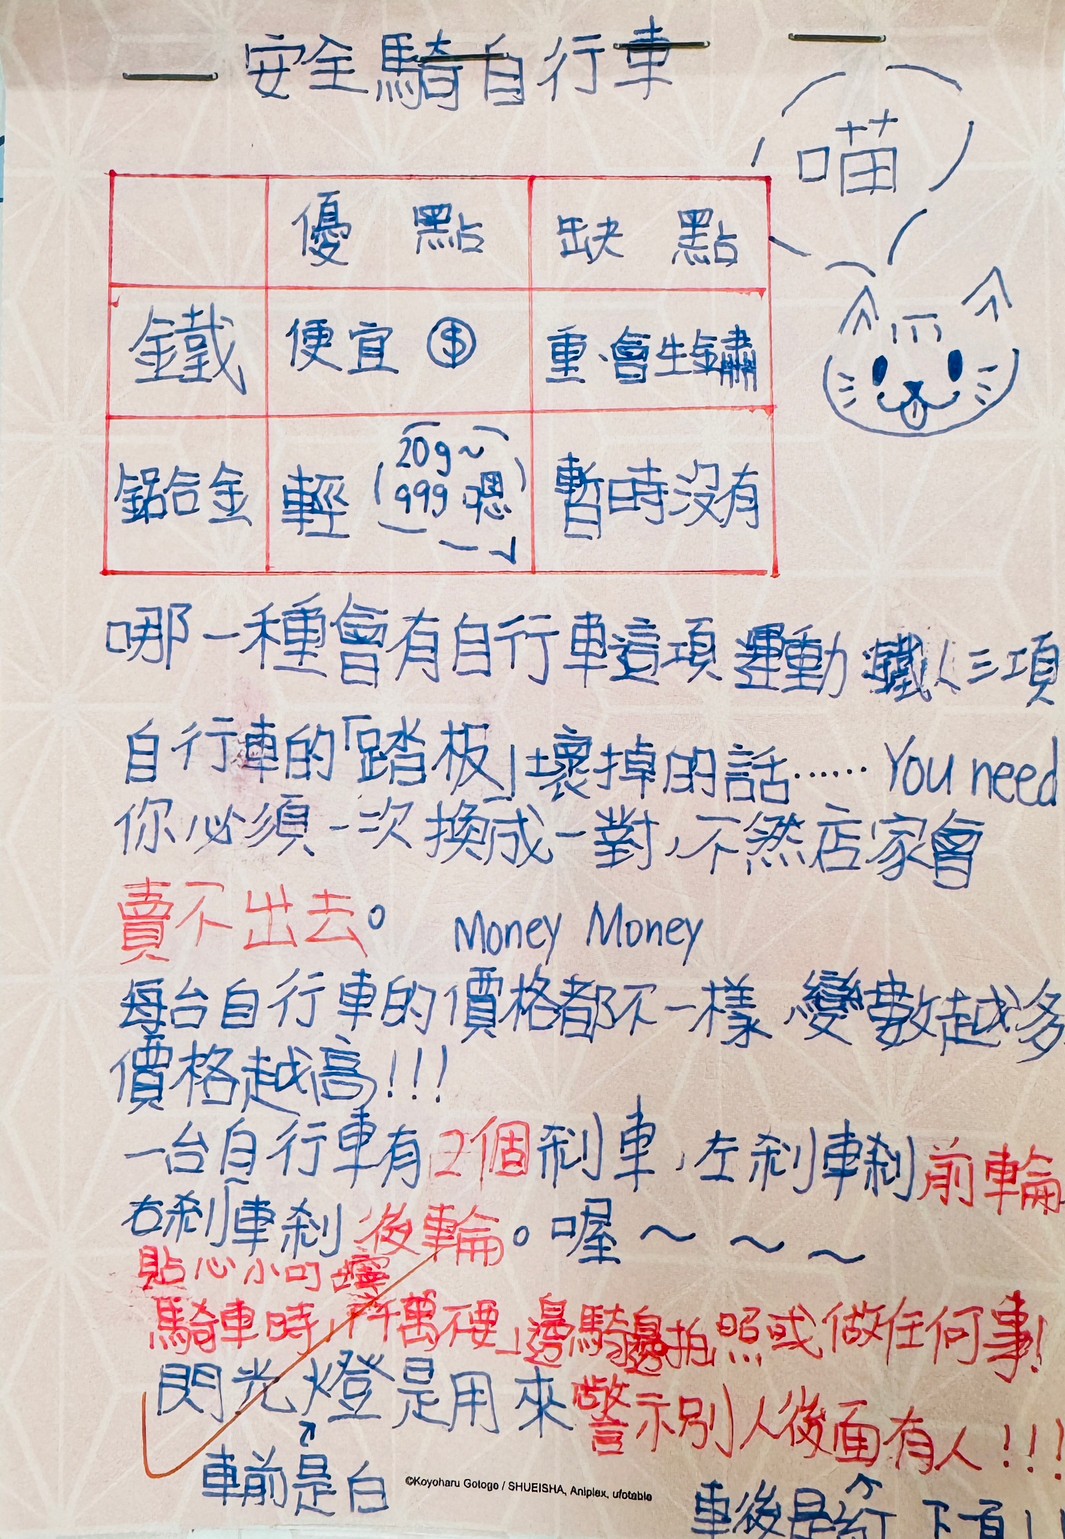 安全騎自行車
喵
優點 缺點
鐵 便宜 $ 重、會生鏽
鋁合金 輕 (20g~999嗯) 暫時沒有
哪一種會有自行車這項運動 鐵人三項
自行車的「踏板」壞掉的話…… You need
你必須一次換成一對,不然店家會
賣不出去。 Money Money
每台自行車的價格都不一樣,變數越多
價格越高!!!
一台自行車有2個剎車,左剎車剎前輪
右剎車剎後輪。喔~~~
貼心小叮嚀
騎車時,「千萬不要」邊騎邊拍照或做任何事!
閃光燈是用來警示別人後面有人!!!
車前是白
車後是紅 下頁!!
©Koyoharu Gotoge / SHUEISHA, Aniplex, ufotable